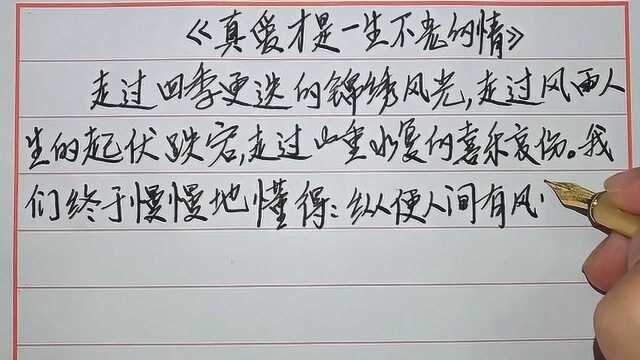 《真爱才是一生不老的情》
走过四季更迭的锦绣风光,走过风雨人
生的起伏跌宕,走过山重水复的喜乐哀伤。我
们终于慢慢地懂得:纵便人间有风